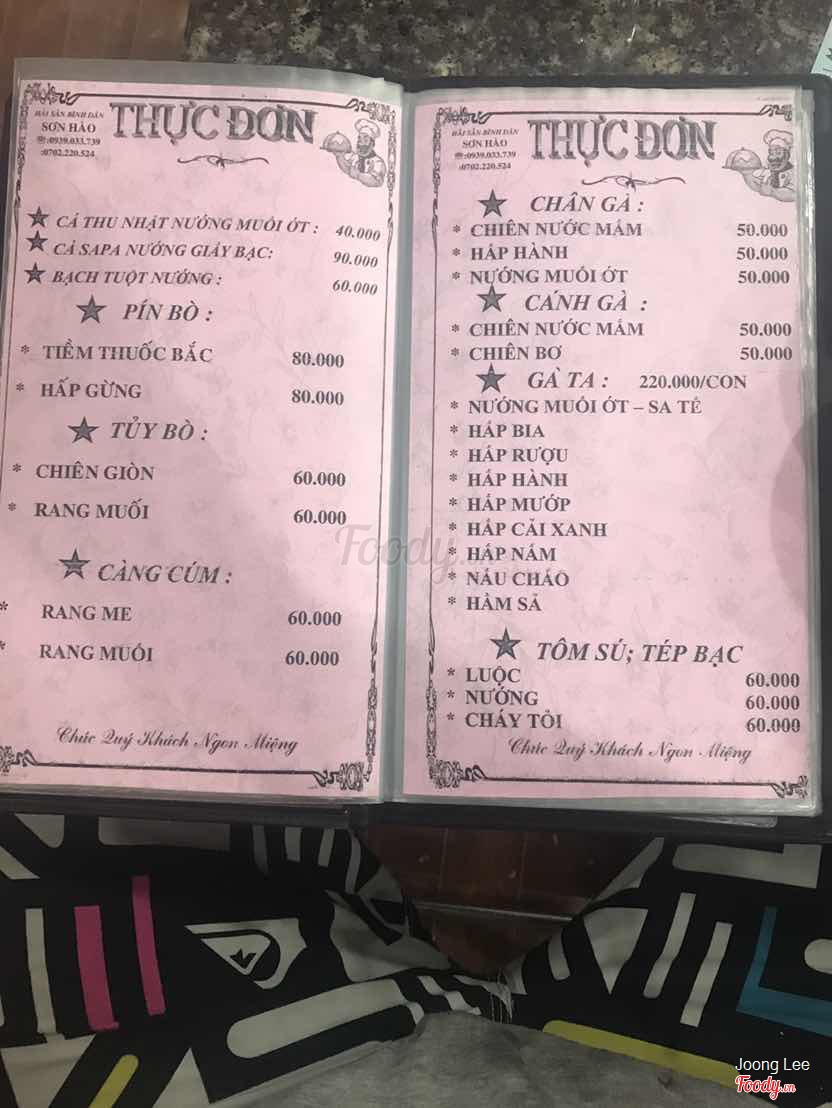 HẢI SẢN BÌNH DÂN
SƠN HÀO
☎:0939.033.739
:0702.220.524
THỰC ĐƠN
★ CÁ THU NHẬT NƯỚNG MUỐI ỚT : 40.000
★ CÁ SAPA NƯỚNG GIẤY BẠC: 90.000
★ BẠCH TUỘT NƯỚNG : 60.000
★ PÍN BÒ :
* TIỀM THUỐC BẮC 80.000
* HẤP GỪNG 80.000
★ TỦY BÒ :
* CHIÊN GIÒN 60.000
* RANG MUỐI 60.000
★ CÀNG CÚM :
* RANG ME 60.000
* RANG MUỐI 60.000
Chúc Quý Khách Ngon Miệng
HẢI SẢN BÌNH DÂN
SƠN HÀO
☎:0939.033.739
:0702.220.524
THỰC ĐƠN
★ CHÂN GÀ :
* CHIÊN NƯỚC MẮM 50.000
* HẤP HÀNH 50.000
* NƯỚNG MUỐI ỚT 50.000
★ CÁNH GÀ :
* CHIÊN NƯỚC MẮM 50.000
* CHIÊN BƠ 50.000
★ GÀ TA : 220.000/CON
* NƯỚNG MUỐI ỚT – SA TẾ
* HẤP BIA
* HẤP RƯỢU
* HẤP HÀNH
* HẤP MƯỚP
* HẤP CẢI XANH
* HẤP NẤM
* NẤU CHÁO
* HẦM SẢ
★ TÔM SÚ; TÉP BẠC
* LUỘC 60.000
* NƯỚNG 60.000
* CHÁY TỎI 60.000
Chúc Quý Khách Ngon Miệng
Foody.vn
Joong Lee
Foody.vn